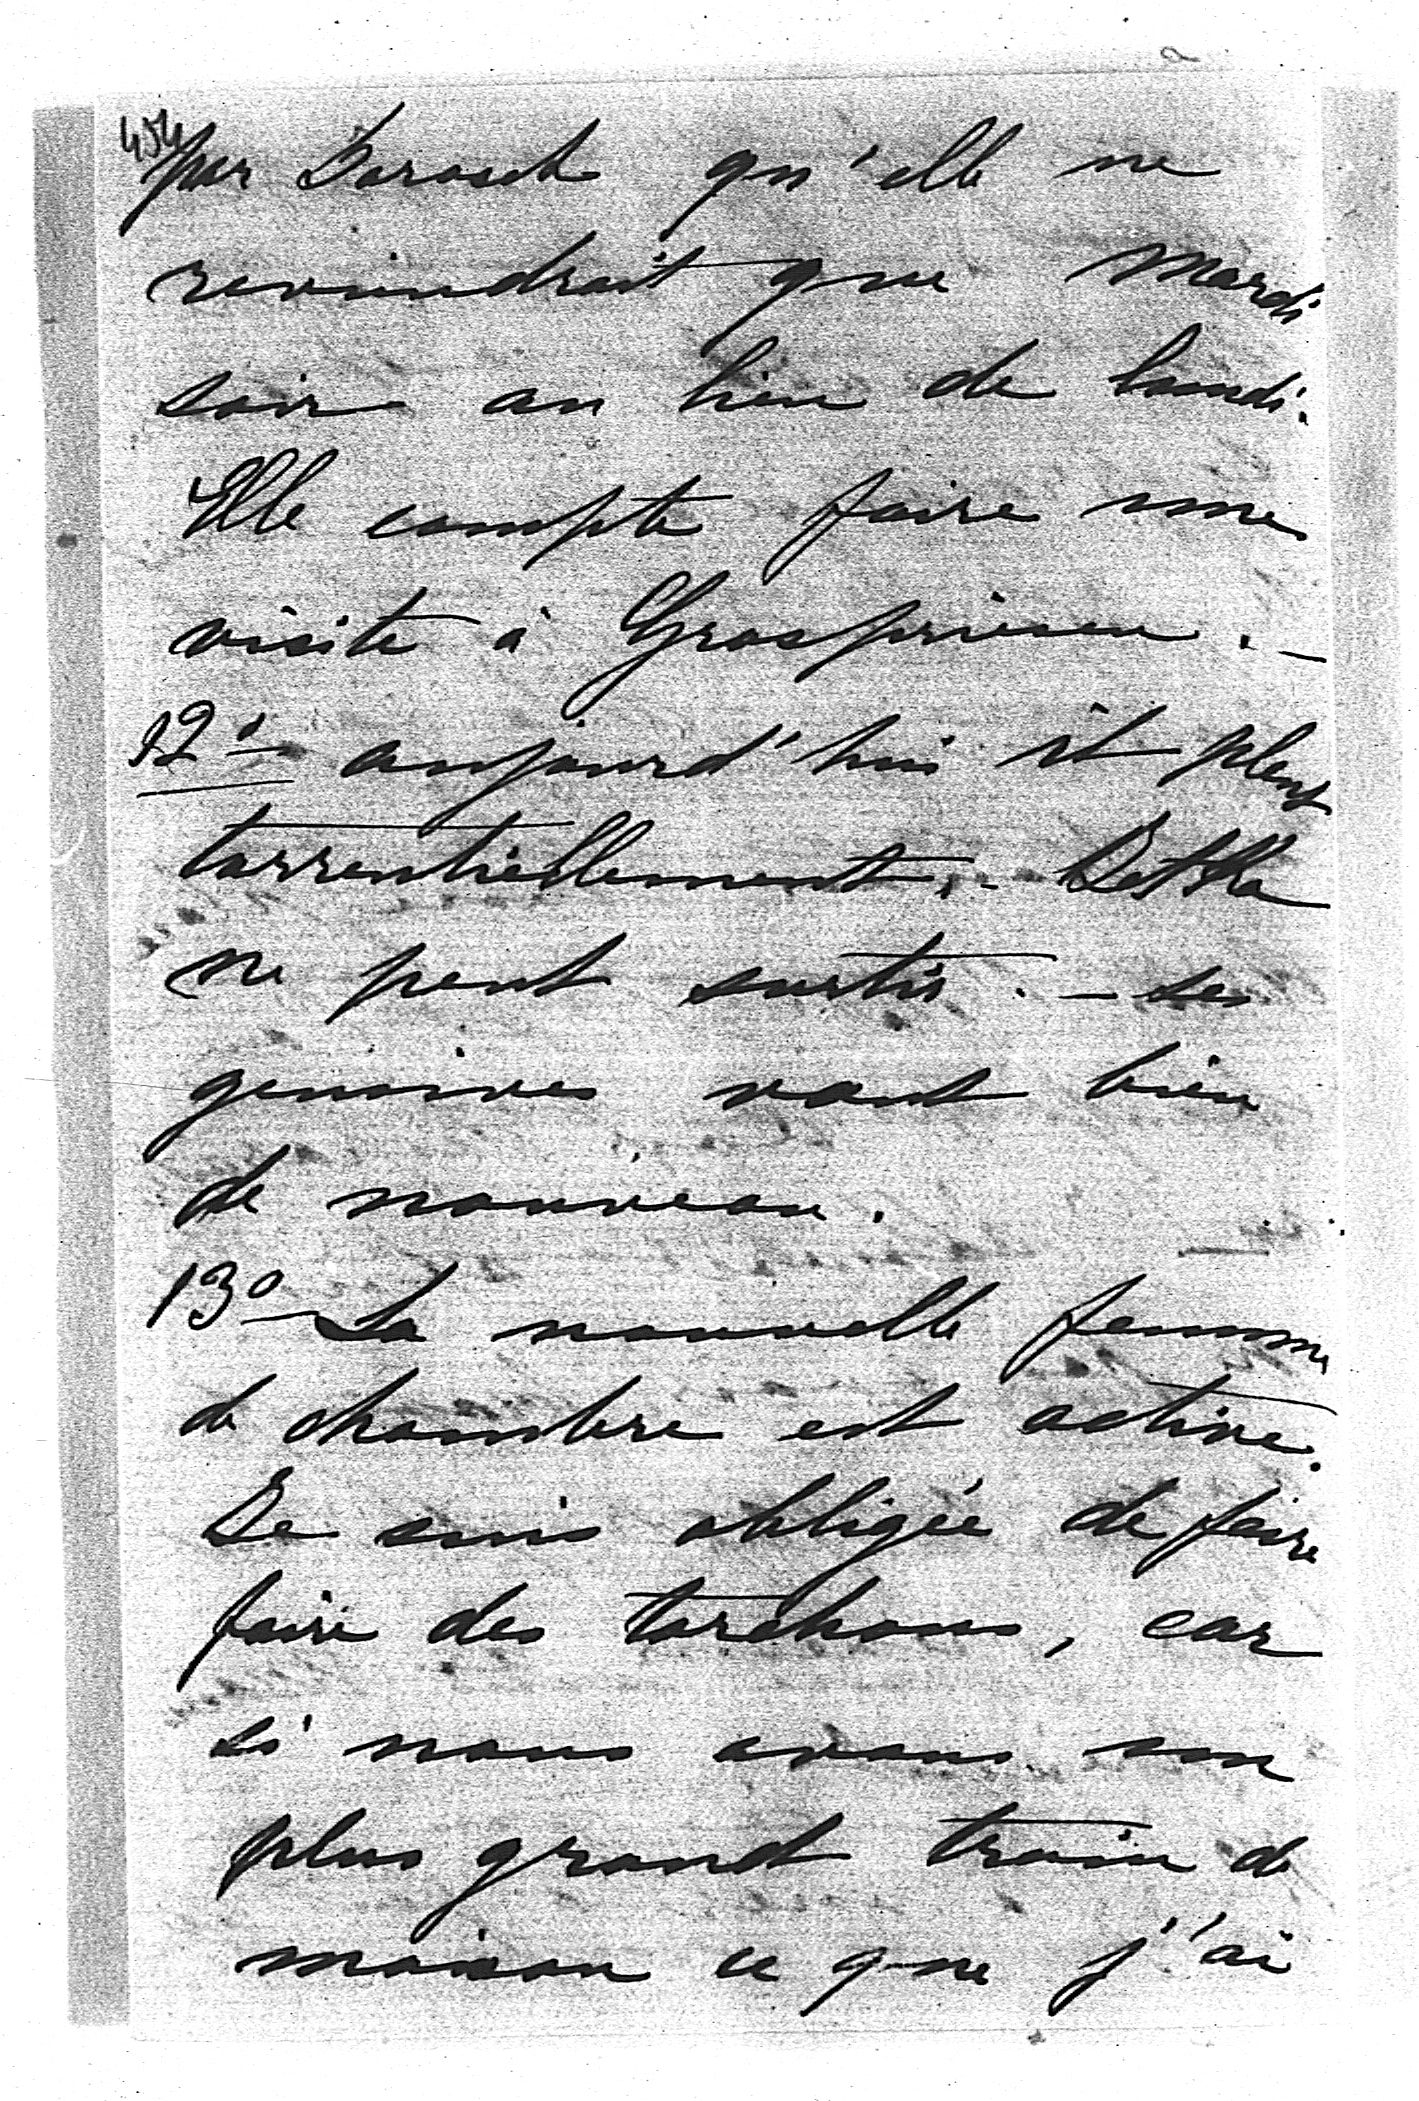 454
par Borosch qu'elle ne
reviendrait que mardi
soir au lieu de lundi.
Elle compte faire une
visite à Grospriesen. –
12° aujourd'hui il pleut
torrentiellement. – Betka
ne peut sortir. – Ses
gencives vont bien
de nouveau.
13° – La nouvelle femme
de chambre est active.
Je suis obligée de faire
faire des torchons, car
si nous avons un
plus grand train de
maison ce que j'ai